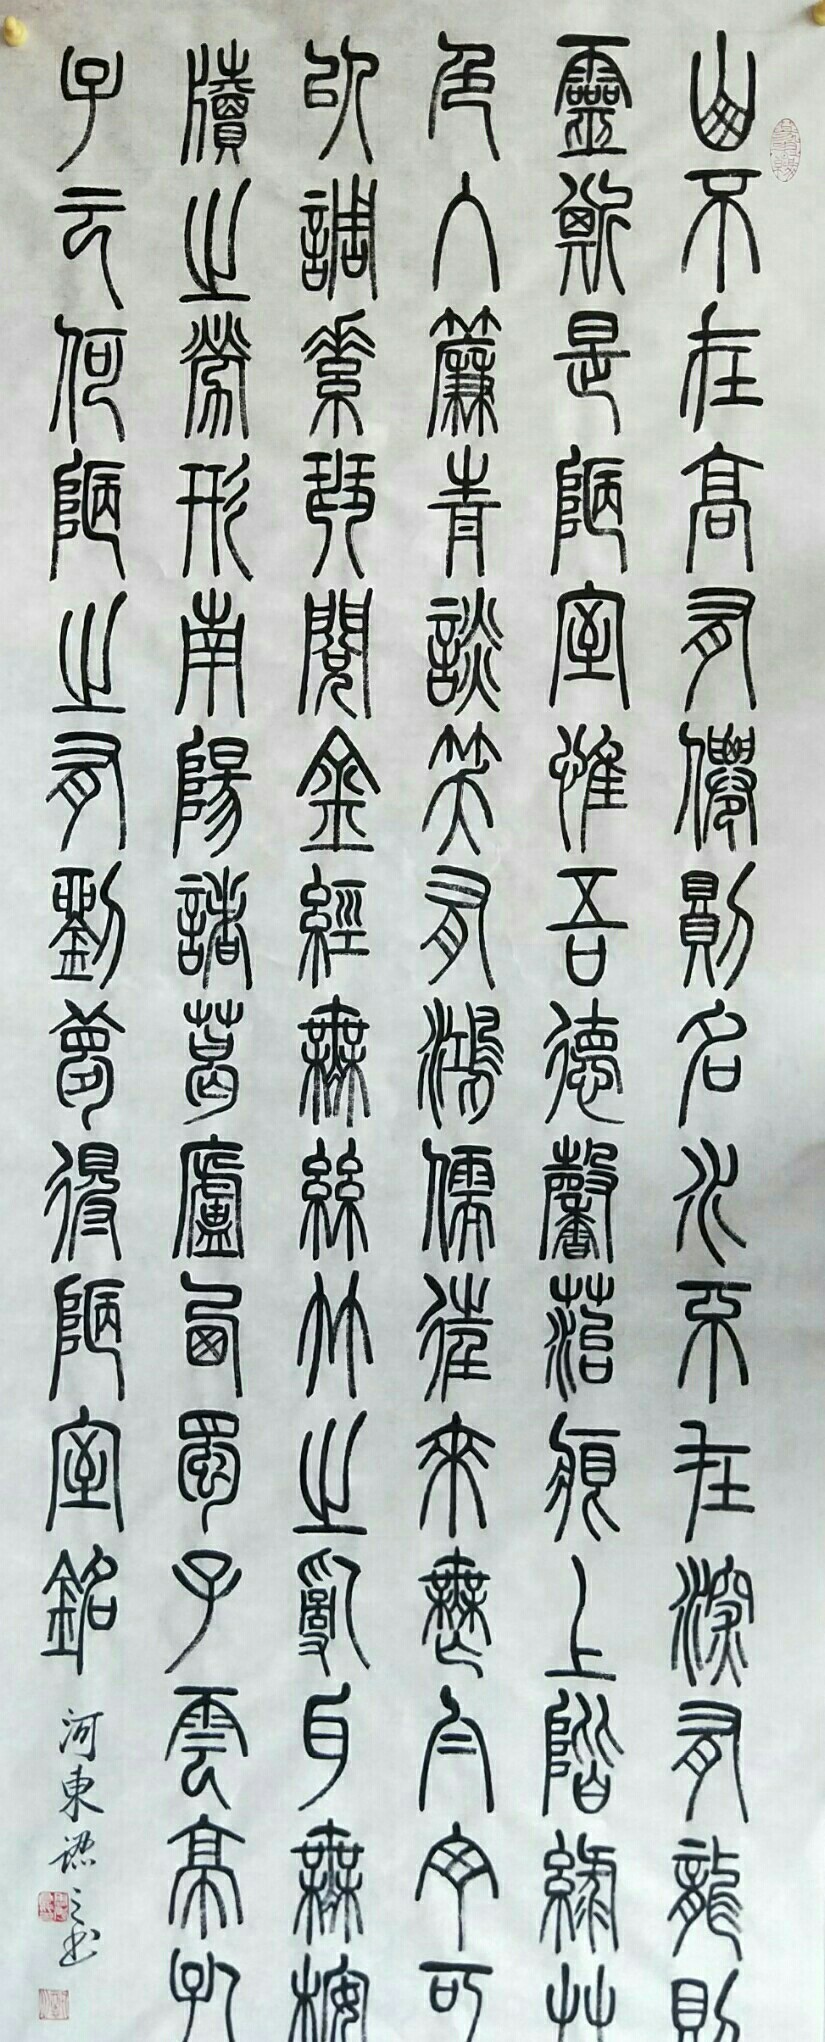 山不在高有僊則名水不在深有龍則
靈斯是陋室惟吾德馨苔痕上階綠艸
色入簾青談笑有鴻儒往來無白丁可
以調素琴閱金經無絲竹之亂耳無桉
牘之勞形南陽諸葛廬西蜀子雲亭孔
子云何陋之有劉夢得陋室銘
河東之书